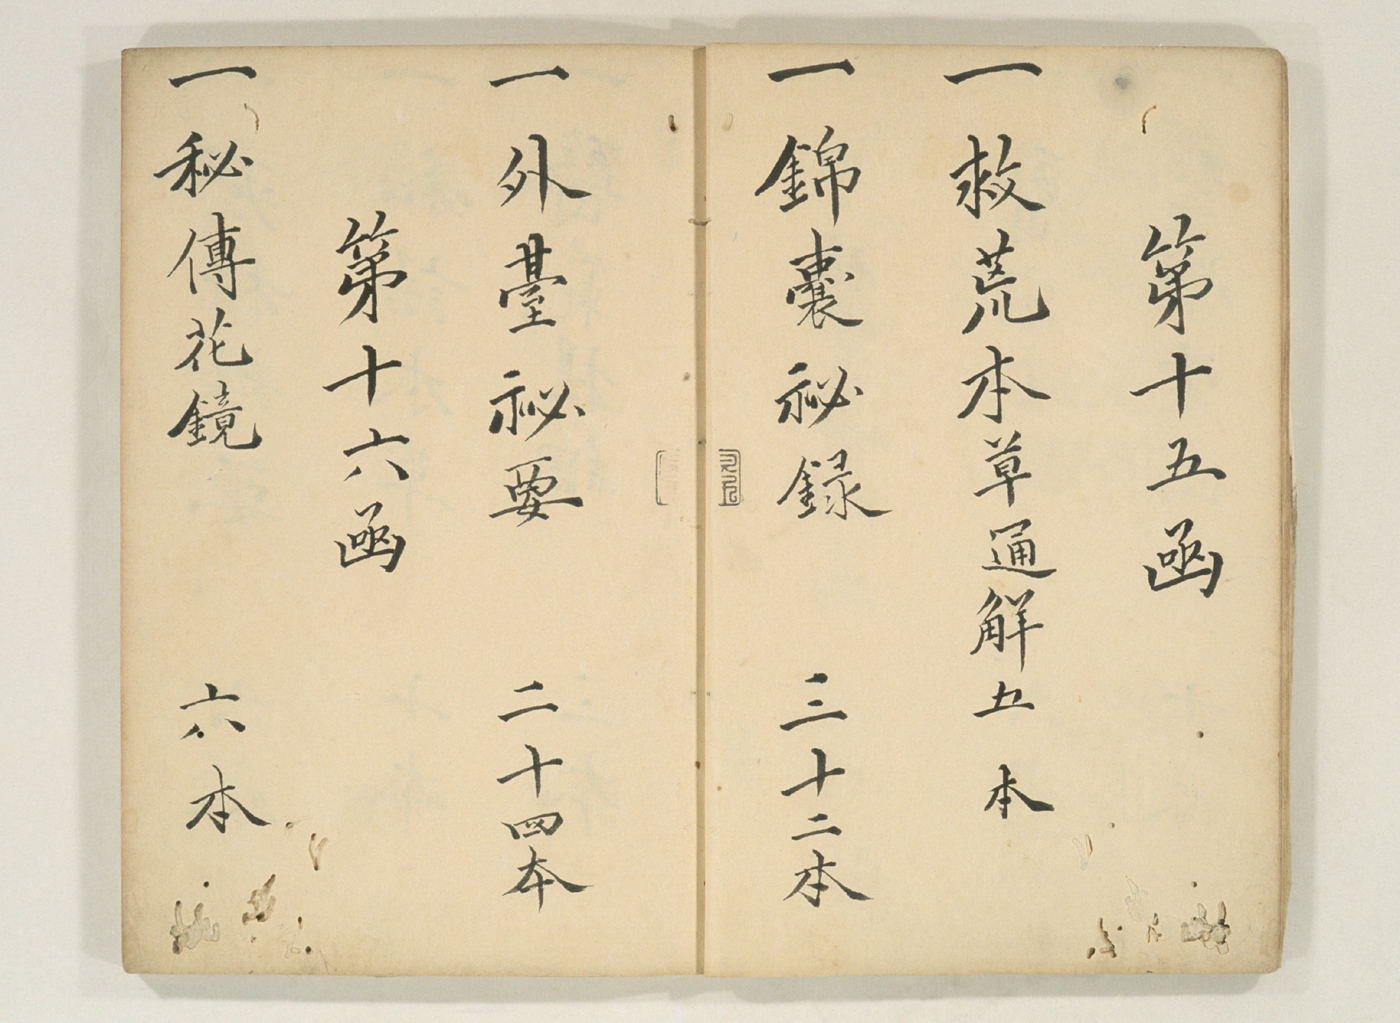 第十五函
一救荒本草通解五本
一錦囊秘録 三十二本
一外臺秘要 二十四本
第十六函
一秘傳花鏡 六本